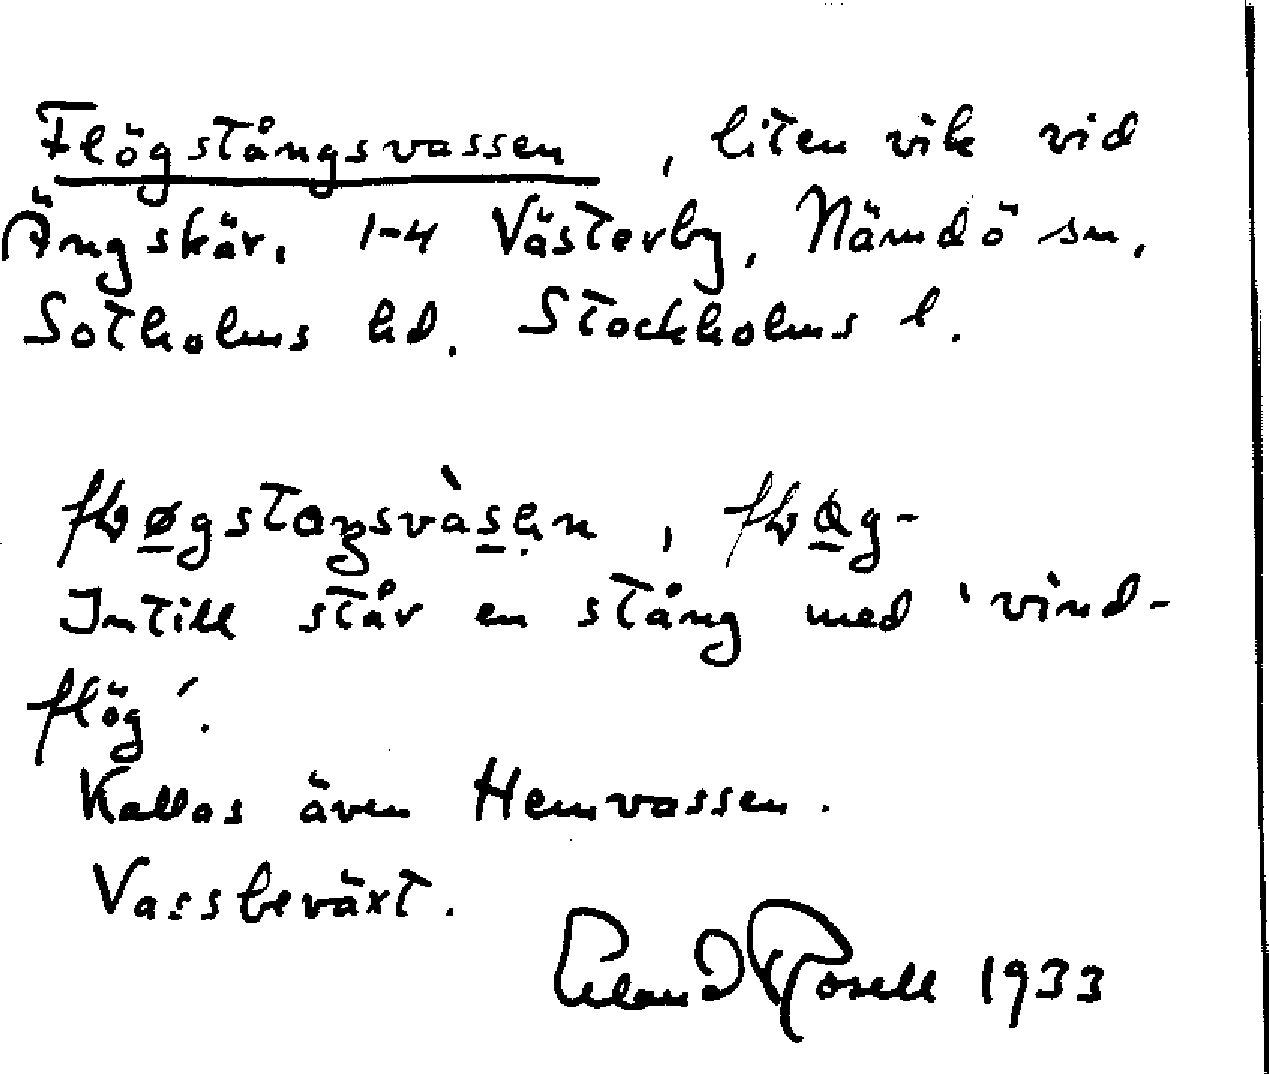 Flögstångsvassen, liten vik vid
Ängskär, 1-4 Västerby, Nämdö sn,
Sotholms hd. Stockholms l.
Intill står en stång med 'vind-
flög'.
Kallas även Hemvassen.
Vassbeväxt.
Erland Rosell 1933